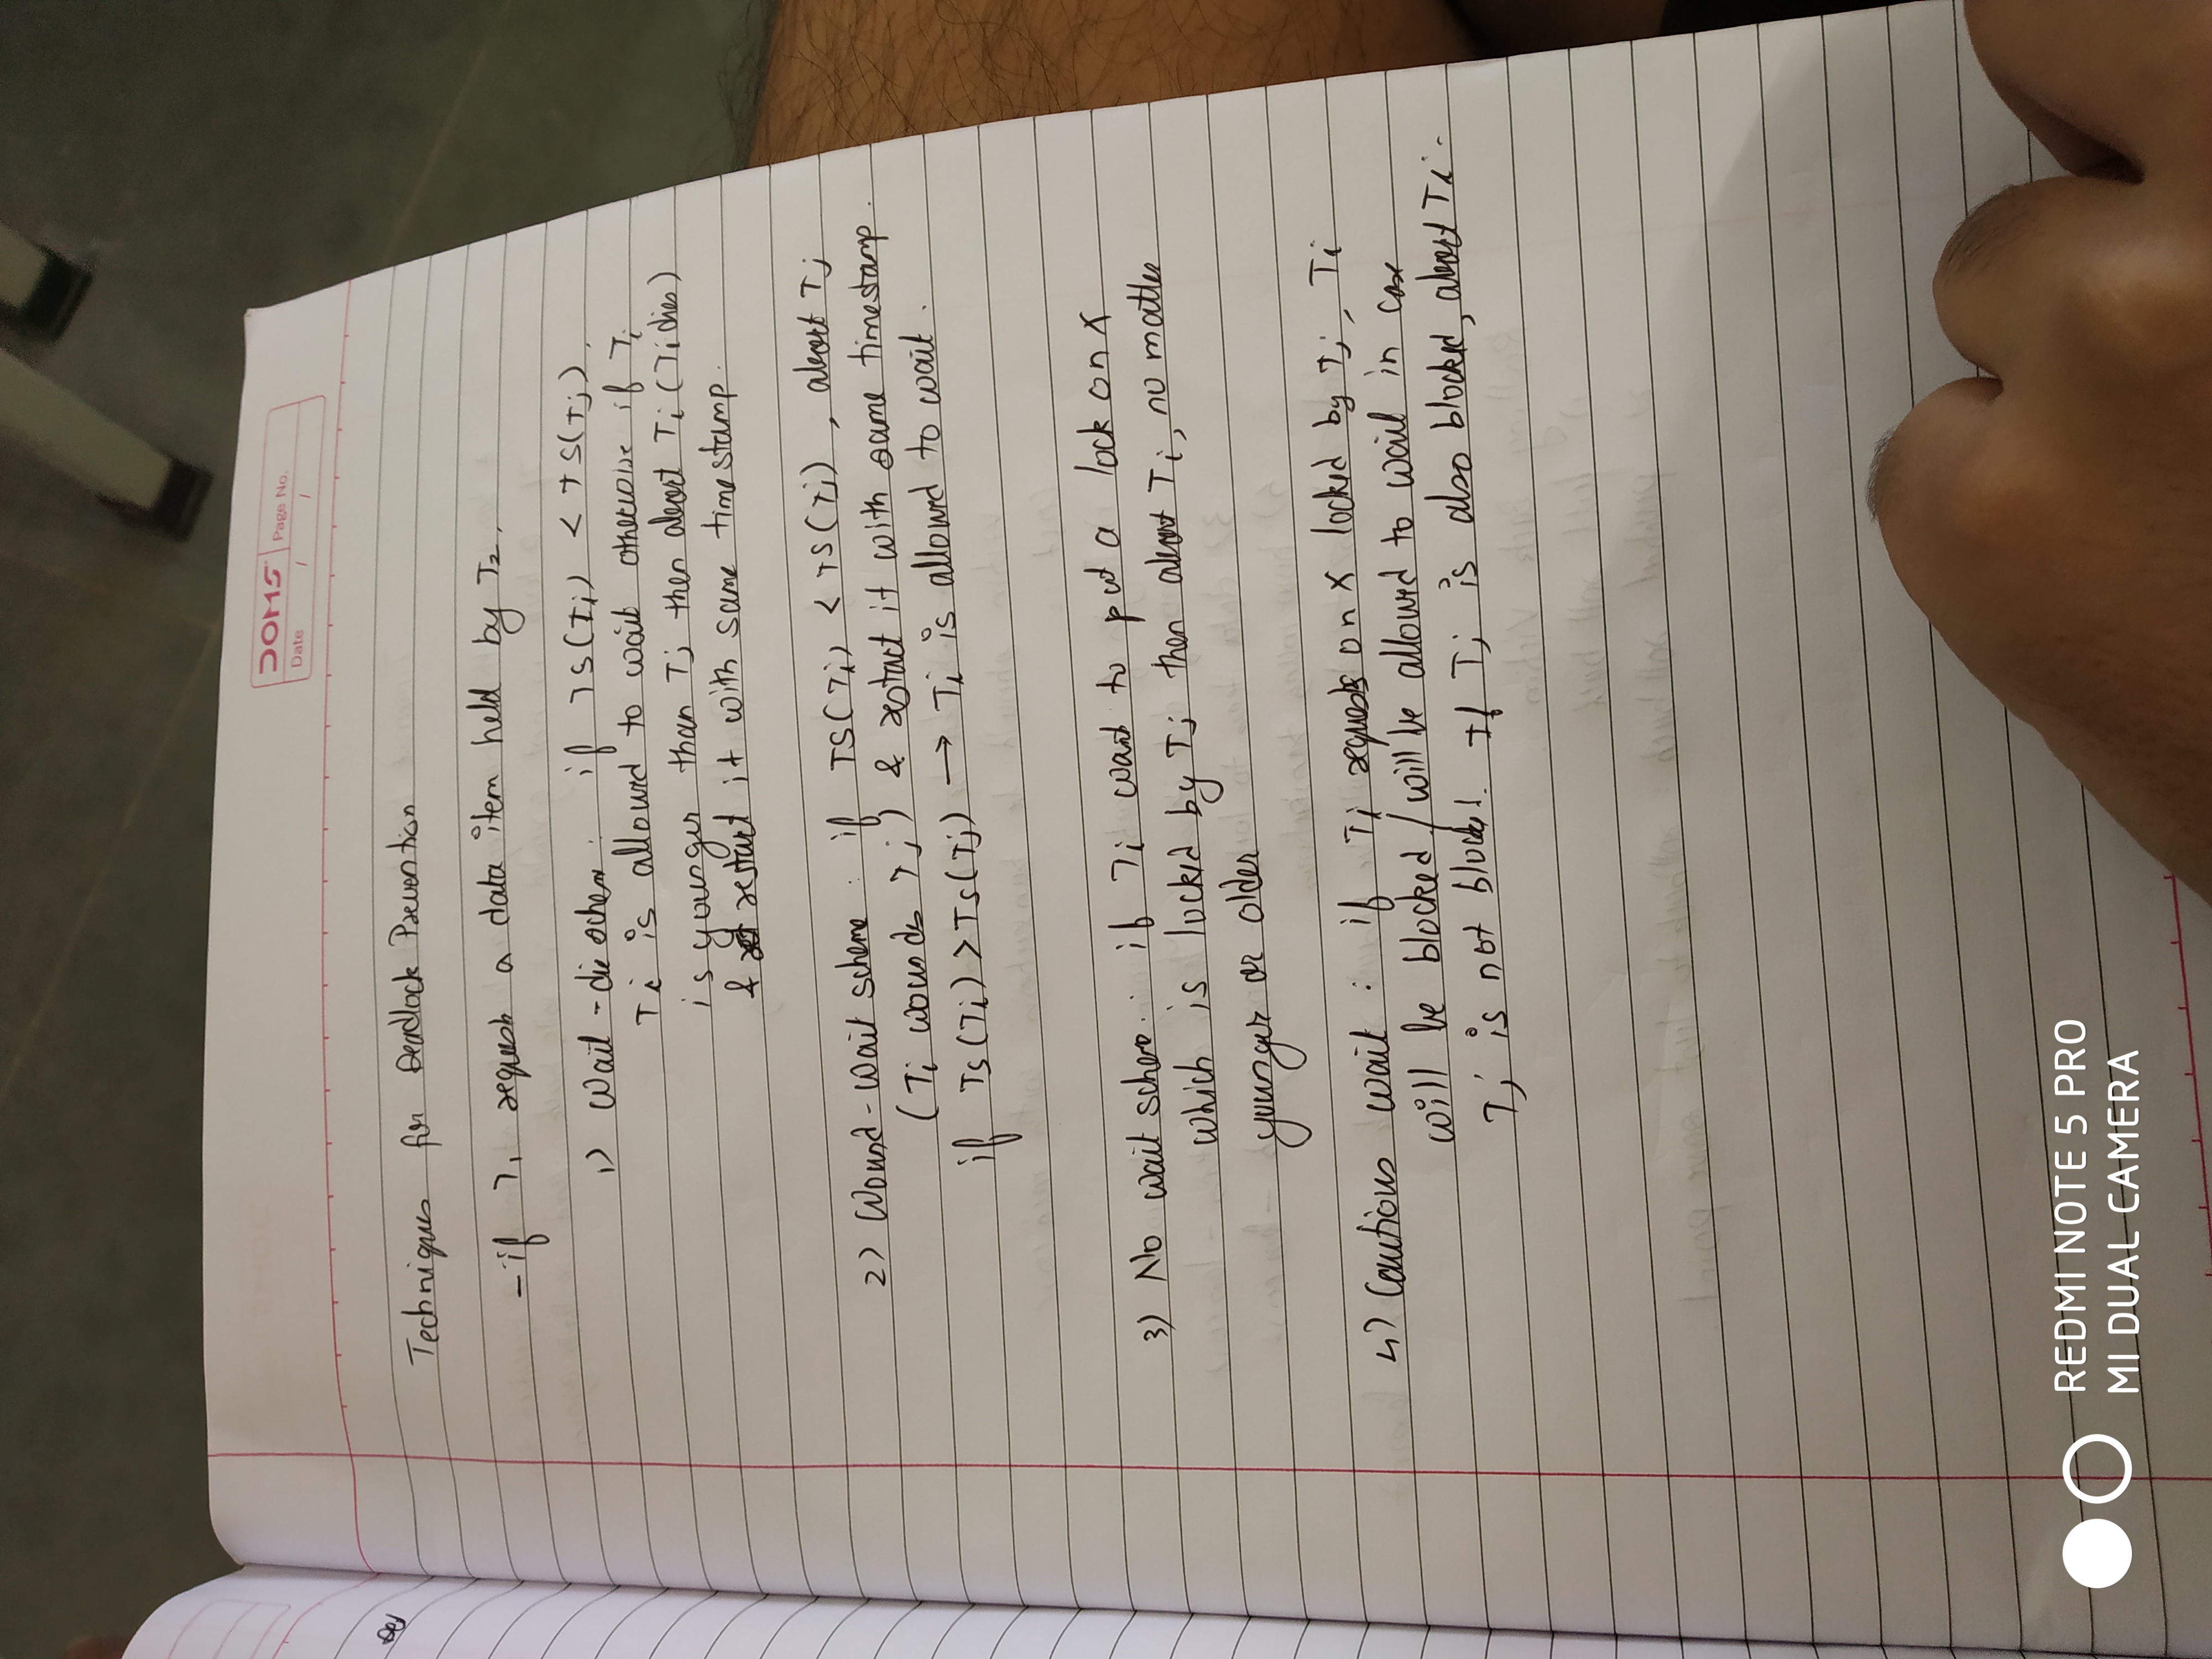 DOMS Page No.
Date / /
Techniques for Deadlock Prevention
- if T1 request a data item held by T2.
1) Wait - die schem : if TS(Ti) < TS(Tj),
Ti is allowed to wait otherwise if Ti
is younger than Tj then abort Ti (Ti dies)
& restart it with same timestamp.
2) Wound - Wait scheme : if TS(Ti) < TS(Tj) , abort Tj
(Ti wounds Tj) & restart it with same timestamp.
if TS(Ti) > TS(Tj) → Ti is allowed to wait.
3) No wait scheme : if Ti want to put a lock on X
which is locked by Tj then abort Ti, no matter
younger or older
4) Cautious wait : if Ti requests on X locked by Tj, Ti
will be blocked / will be allowed to wait in case
Tj is not blocked. If Tj is also blocked, abort Ti.
REDMI NOTE 5 PRO
MI DUAL CAMERA